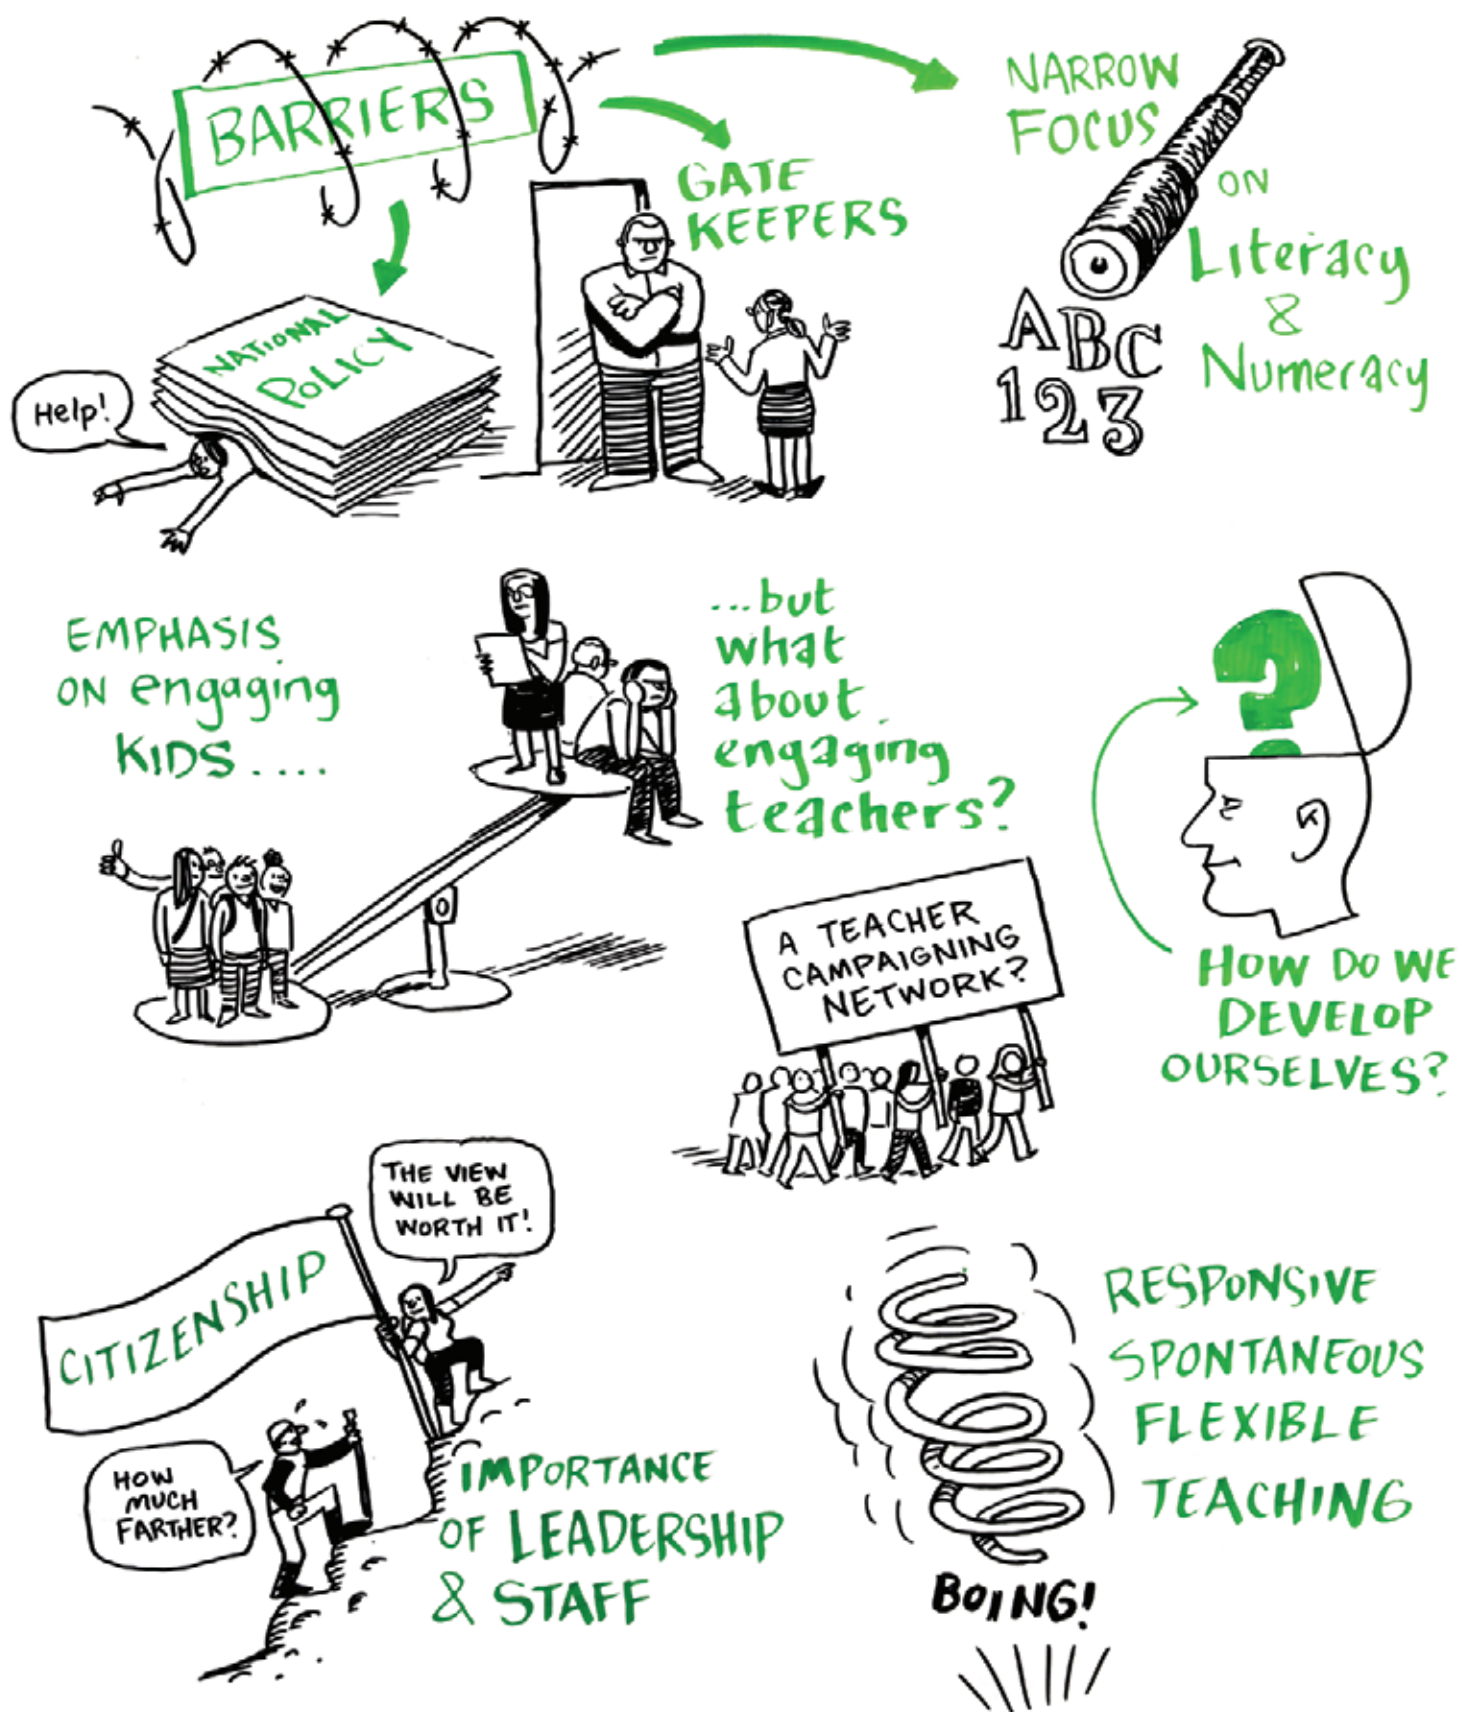 BARRIERS
GATE
KEEPERS
NARROW
FOCUS
ON
Literacy
&
Numeracy
ABC
123
NATIONAL
POLICY
Help!
EMPHASIS
ON engaging
KIDS....
...but
what
about
engaging
teachers?
A TEACHER
CAMPAIGNING
NETWORK?
HOW DO WE
DEVELOP
OURSELVES?
THE VIEW
WILL BE
WORTH IT!
CITIZENSHIP
HOW
MUCH
FARTHER?
IMPORTANCE
OF LEADERSHIP
& STAFF
RESPONSIVE
SPONTANEOUS
FLEXIBLE
TEACHING
BOING!